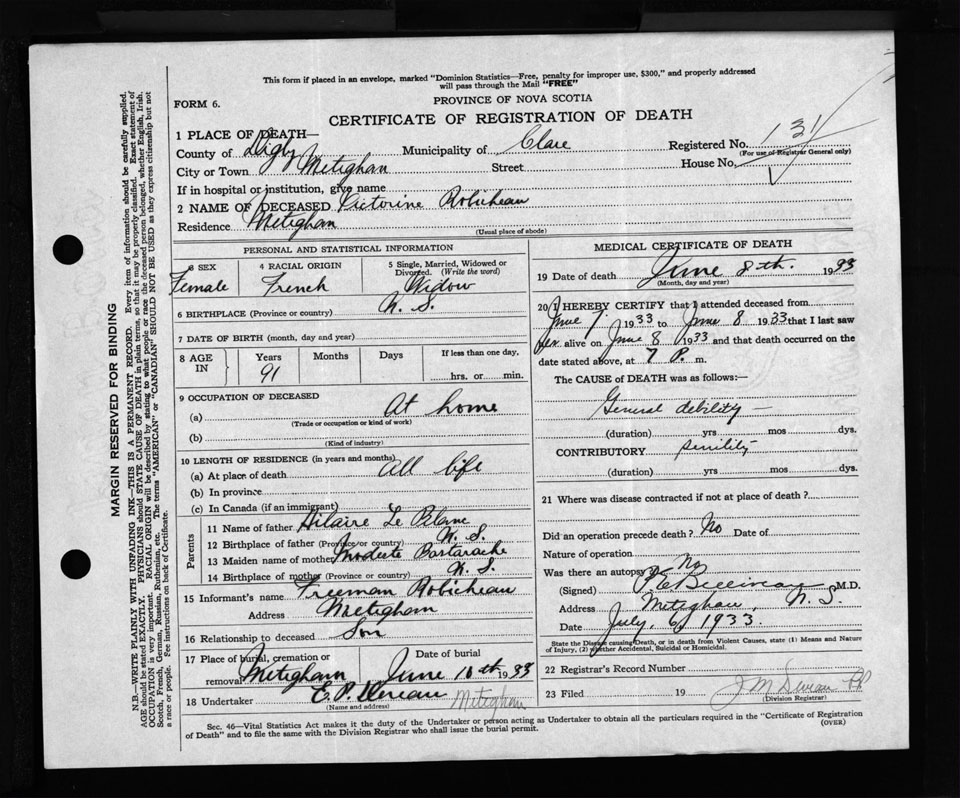 This form if placed in an envelope, marked "Dominion Statistics—Free, penalty for improper use, $300," and properly addressed
will pass through the Mail "FREE"
FORM 6.
PROVINCE OF NOVA SCOTIA
CERTIFICATE OF REGISTRATION OF DEATH
1 PLACE OF DEATH—
County of Digby Municipality of Clare Registered No. 131
(For use of Registrar General only)
City or Town Meteghan Street House No.
If in hospital or institution, give name
2 NAME OF DECEASED Victorine Robicheau
Residence Meteghan
(Usual place of abode)
PERSONAL AND STATISTICAL INFORMATION
3 SEX 4 RACIAL ORIGIN 5 Single, Married, Widowed or
Divorced. (Write the word)
Female French Widow
6 BIRTHPLACE (Province or country) N. S.
7 DATE OF BIRTH (month, day and year)
8 AGE IN Years Months Days If less than one day.
91 hrs. or min.
9 OCCUPATION OF DECEASED
(a) At home
(Trade or occupation or kind of work)
(b)
(Kind of industry)
10 LENGTH OF RESIDENCE (in years and months)
(a) At place of death all life
(b) In province
(c) In Canada (if an immigrant)
Parents
11 Name of father Hilaire Le Blanc
12 Birthplace of father (Province or country) N. S.
13 Maiden name of mother Modeste Bastarache
14 Birthplace of mother (Province or country) N. S.
15 Informant's name Freeman Robicheau
Address Meteghan
16 Relationship to deceased Son
17 Place of burial, cremation or Date of burial
removal Meteghan June 10th 1933
18 Undertaker Meteghan
(Name and address)
MEDICAL CERTIFICATE OF DEATH
19 Date of death June 8th. 1933
(Month, day and year)
20 I HEREBY CERTIFY that I attended deceased from
June 7 1933 to June 8 1933 that I last saw
her alive on June 8 1933 and that death occurred on the
date stated above, at 7 P. m.
The CAUSE OF DEATH was as follows:—
General debility —
(duration) yrs mos dys.
CONTRIBUTORY senility
(duration) yrs mos dys.
21 Where was disease contracted if not at place of death?
Did an operation precede death? No Date of
Nature of operation
Was there an autopsy No
(Signed) M.D.
Address Meteghan, N. S.
Date July, 6, 1933.
State the Disease causing Death, or in death from Violent Causes, state (1) Means and Nature
of Injury, (2) whether Accidental, Suicidal or Homicidal.
22 Registrar's Record Number
23 Filed 19
(Division Registrar)
Sec. 46—Vital Statistics Act makes it the duty of the Undertaker or person acting as Undertaker to obtain all the particulars required in the "Certificate of Registration
of Death" and to file the same with the Division Registrar who shall issue the burial permit. (OVER)
MARGIN RESERVED FOR BINDING
N.B.—WRITE PLAINLY WITH UNFADING INK—THIS IS A PERMANENT RECORD. Every item of information should be carefully supplied.
AGE should be stated EXACTLY. PHYSICIANS should STATE CAUSE OF DEATH in plain terms, so that it may be properly classified. Exact statement of
OCCUPATION is very important. RACIAL ORIGIN will be described by stating to what people or race the deceased person belonged, whether English, Irish,
Scotch, French, German, Russian, Ruthenian, etc. The terms "AMERICAN" or "CANADIAN" SHOULD NOT BE USED as they express citizenship but not
a race or people. See instructions on back of Certificate.